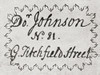 Do. Johnson
No. 81.
Titchfield Street